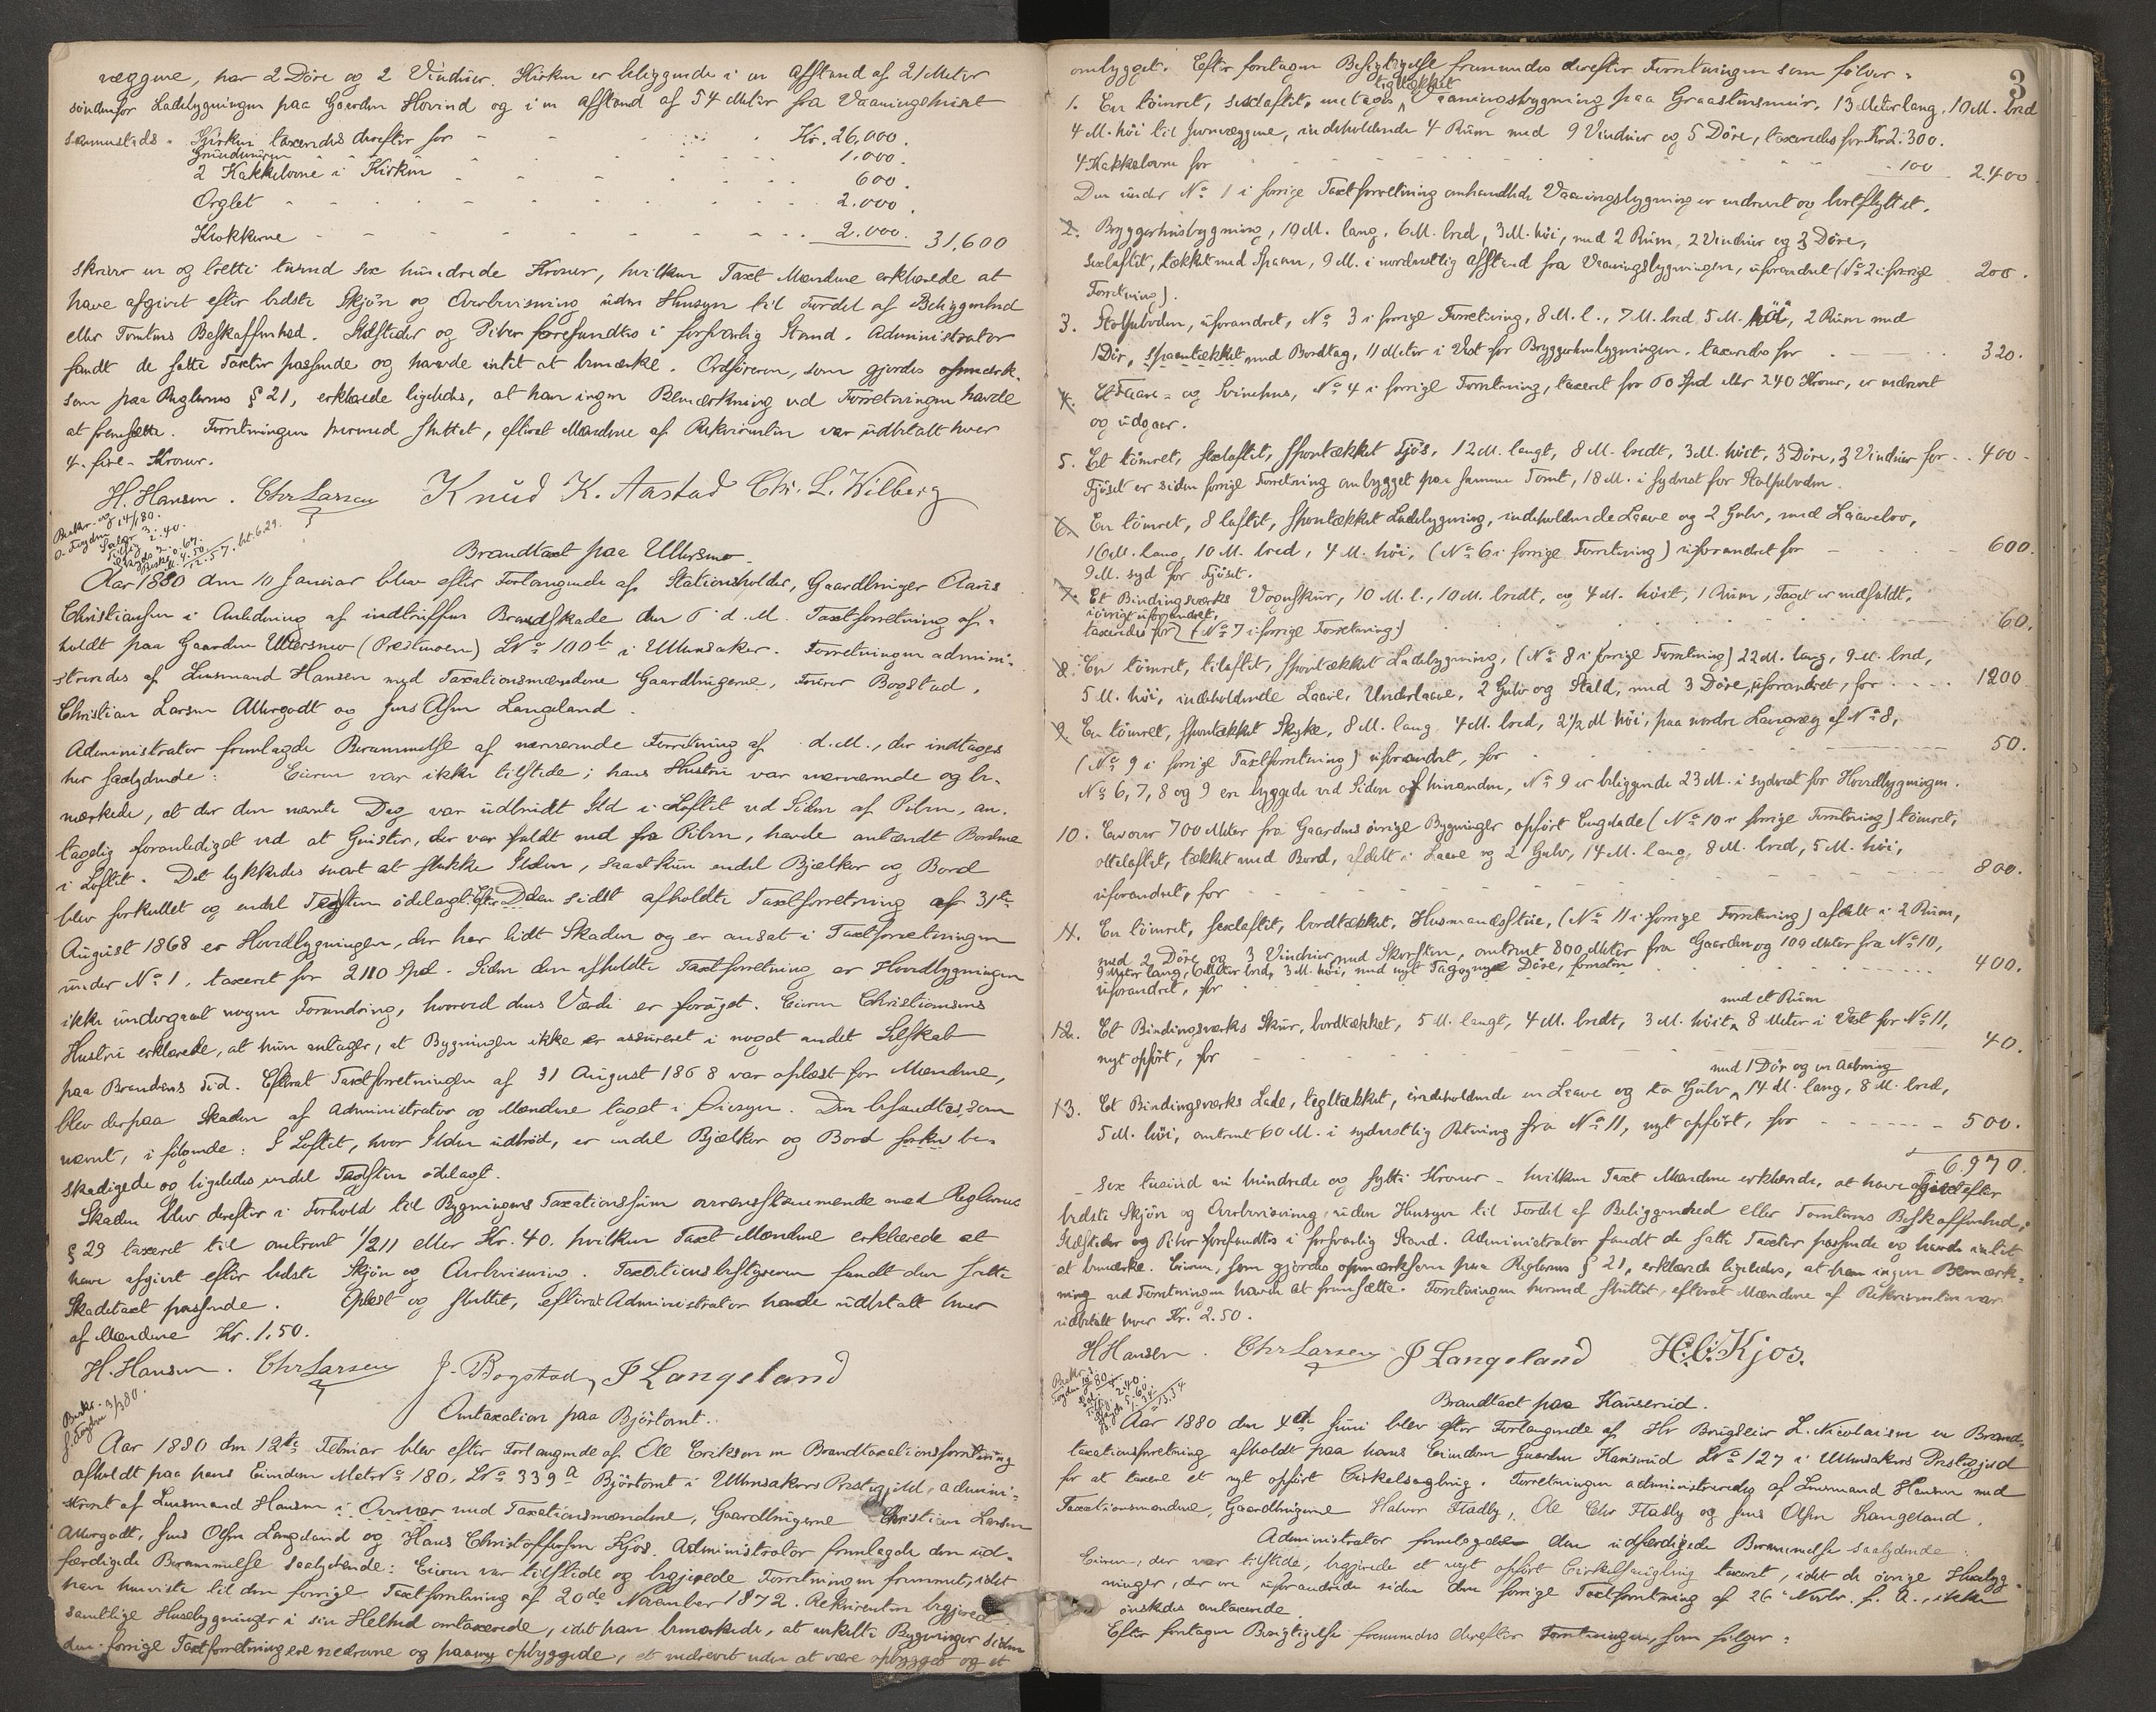 væggene, har 2 Döre og 2 Vinduer. Kirken er beliggende i en Afstand af 21 Meter
søndenfor Ladebygningen paa Gaarden Hovind og i en Afstand af 54 Meter fra Vaaningshuset
sammesteds. Kirken taxeredes derefter for - - - Kr. 26,000.
Grundmuren - - - 1.000.
2 Kakkelovne i Kirken - - - 600.
Orglet - - - 2.000.
Klokkerne - - - 2.000. 31,600
skriver en og tretti tusind sex hundrede Kroner, hvilken Taxt Mændene erklærede at
have afgivet efter bedste Skjön og Overbevisning uden Hensyn til Fordel af Beliggenhed
eller Tomtens Beskaffenhed. Ildsteder og Piber forefandtes i forsvarlig Stand. Administrator
fandt de satte Taxter passende og havde intet at bemærke. Ordföreren, som gjordes opmærk-
som paa Reglernes § 21, erklærede ligeledes, at han ingen Bemærkning ved Forretningen havde
at fremsætte. Forretningen hermed sluttet, efterat Mændene af Rekvirenten var udbetalt hver
4 - fire - Kroner.
H. Hansen. Chr Larsen Knud K. Aastad Chr. L. Wilberg
Brandtaxt paa Ullersmo
Aar 1880 den 10 Januar blev efter Forlangende af Stationsholder, Gaardbruger Claus
Christiansen i Anledning af indtruffen Brandskade den 6 d. M. Taxtforretning af-
holdt paa Gaarden Ullersmo (Prestmoen) LNo 100b i Ullensaker. Forretningen admini-
streredes af Lensmand Hansen med Taxationsmændene Gaardbrugerne, Bogstad,
Christian Larsen Allergodt og Jens Olsen Langeland.
Administrator fremlagde Berammelse af nærværende Forretning af d. M., der indtages
her saalydende: Eieren var ikke tilstede; hans Hustru var nærværende og be-
mærkede, at der den nævnte Dag var udbrudt Ild i Loftet ved Siden af Piben, an-
tagelig foranlediget ved at Gnister, der var faldt ned fra Piben, havde antændt Bordene
i Loftet. Det lykkedes snart at slukke Ilden, saaat kun endel Bjælker og Bord
blev forkullet og endel Tagsten ödelagt. Efter den sidst afholdte Taxtforretning af 31te
August 1868 er Hovedbygningen, der har lidt Skaden og er ansat i Taxtforretningen
under No 1, taxeret for 2110 Spd. Siden den afholdte Taxtforretning er Hovedbygningen
ikke undergaaet nogen Forandring, hvorved dens Værdi er foröget. Eieren Christiansens
Hustru erklærede, at hun antager, at Bygningen ikke er assureret i noget andet Selskab
paa Brandens Tid. Efterat Taxtforretningen af 31 August 1868 var oplæst for Mændene,
blev derpaa Skaden af Administrator og Mændene taget i Öiesyn. Den befandtes, som
nævnt, i fölgende: I Loftet, hvor Ilden udbröd, er endel Bjælker og Bord be-
skadigede og ligeledes endel Tagsten ödelagt.
Skaden blev derefter i Forhold til Bygningens Taxationssum overensstemmende med Reglernes
§ 29 taxeret til omtrent 1/211 eller Kr. 40. hvilken Taxt Mændene erklærede at
have afgivet efter bedste Skjön og Overbevisning. Taxationsbestyreren fandt den satte
Skadetaxt passende. Oplæst og sluttet, efterat Administrator havde udbetalt hver
af Mændene Kr. 1.50.
H. Hansen. Chr Larsen J. Bogstad J Langeland
Omtaxation paa Björtomt.
Aar 1880 den 12te Februar blev efter Forlangende af Ole Eriksen en Brandtaxationsforretning
afholdt paa hans Eiendom MatrNo 180, LNo 339a Björtomt i Ullensakers Prestegjeld, admini-
streret af Lensmand Hansen i Overvær med Taxationsmændene, Gaardbrugerne Christian Larsen
Allergodt, Jens Olsen Langeland og Hans Christoffersen Kjos. Administrator fremlagde den ud-
færdigede Berammelse saalydende: Eieren var tilstede og begjærede Forretningen fremmet, idet
han henviste til den forrige Taxtforretning af 20de November 1872. Rekvirenten begjærede
samtlige Husebygninger i sin Helhed omtaxerede, idet han bemærkede, at enkelte Bygninger siden
den forrige Taxtforretning ere nedrevne og paany opbyggede, et nedrevet uden at være opbygget og et
3
ombygget. Efter foretagen Besigtigelse fremmedes derefter Forretningen som fölger:
teglhækket
1. En tömret, sexlaftet, toetages Vaaningsbygning paa Graastensmur, 13 Meter lang, 10 M. bred
4 M. höi til Svevæggene, indeholdende 4 Rum med 9 Vinduer og 5 Döre, taxeredes for Kr 2.300.
4 Kakkelovne for - - - 100 2.400
Den under No 1 i forrige Taxtforretning omhandlede Vaaningsbygning er nedrevet og bortflyttet.
2. Bryggerhusbygning, 10 M. lang, 6 M. bred, 3 M. höi, med 2 Rum, 2 Vinduer og 3 Döre,
sexlaftet, tækket med Spaan, 9 M. i nordostlig Afstand fra Vaaningsbygningen, uforandret (No 2 i forrige 200.
Forretning).
3. Stolpeboden, uforandret, No 3 i forrige Forretning, 8 M. l., 7 M. bred 5 M. höi, 2 Rum med
1 Dör, spaantækket med Bordtag, 11 Meter i Vest for Bryggerhusbygningen, taxeredes for 320.
4. Et Faare- og Svinehus, No 4 i forrige Forretning, taxeret for 60 Spd eller 240 Kroner, er nedrevet
og udgaar.
5. Et tömret, sexlaftet, spontækket Fjös, 12 M. langt, 8 M. bredt, 3 M. höit, 3 Döre, 3 Vinduer for 400
Fjöset er siden forrige Forretning ombygget paa samme Tomt, 18 M. i Sydvest for Stolpeboden.
6. En tömret, 8 laftet, spontækket Ladebygning, indeholdende Laave og 2 Gulv, med Laavebro,
16 M. lang, 10 M. bred, 4 M. höi, (No 6 i forrige Forretning) uforandret for - - - 600.
9 M. syd for Fjöset.
7. Et Bindingsværks Vognskur, 10 M. l., 10 M. bredt, og 4 M. höit, 1 Rum, Taget er nedfaldt,
iövrigt uforandret,
taxeredes for (No 7 i forrige Forretning) 60.
8. En tömret, tilaftet, spontækket Ladebygning, (No 8 i forrige Forretning) 22 M. lang, 9 M. bred,
5 M. höi, indeholdende Laave, Underlaave, 2 Gulv og Stald, med 3 Döre, uforandret, for 1200
9. En tömret, spontækket Skyke, 8 M. lang 4 M. bred, 2 1/2 M höi, paa nordre Langvæg af No 8,
(No 9 i forrige Taxtforretning) uforandret, for 50.
No 6, 7, 8 og 9 ere byggede ved Siden af hinanden, No 9 er beliggende 23 M. i sydvest for Hovedbygningen.
10. En over 700 Meter fra Gaardens övrige Bygninger opfört Englade (No 10 i forrige Forretning) tömret,
ottelaftet, tækket med Bord, afdelt i Laave og 2 Gulv, 14 M. lang, 8 M. bred, 5 M. höi,
uforandret, for 800.
11. En tömret, sexlaftet, bordtækket, Husmandsstue, (No 11 i forrige Forretning) afdelt i 2 Rum,
med 2 Döre og 3 Vinduer med Skorsten, omtrent 800 Meter fra Gaarden og 100 Meter fra No 10,
9 Meter lang, 6 Meter bred, 3 M. höi, med nyt Tag og nye Döre, forøvrigt
uforandret, for 400.
med et Rum
12. Et Bindingsværks Skur, bordtækket, 5 M. langt, 4 M. bredt, 3 M. höit, 8 Meter i Vest for No 11,
nyt opfört, for 40.
med 1 Dör og en Aabning
13. Et Bindingsværks Lade, tegltækket, indeholdende en Laave og to Gulv, 14 M. lang, 8 M. bred,
5 M. höi, omtrent 60 M. i sydostlig Retning fra No 11, nyt opfört, for - - - 500.
6.970.
- sex tusind ni hundrede og sytti Kroner - hvilken Taxt Mændene erklærede, at have afgivet efter
bedste Skjön og Overbevisning, uden Hensyn til Fordel af Beliggenhed eller Tomternes Beskaffenhed.
Ildsteder og Piber forefandtes i forsvarlig Stand. Administrator fandt de satte Taxter passende og havde intet
at bemærke. Eieren, som gjordes opmærksom paa Reglernes § 21, erklærede ligeledes, at han ingen Bemærk-
ning ved Forretningen havde at fremsætte. Forretningen hermed sluttet, efterat Mændene af Rekvirenten var
udbetalt hver Kr. 2.50.
H Hansen. Chr Larsen J Langeland H.C. Kjos.
Brandtaxt paa Kauserud.
Aar 1880 den 4de Juni blev efter Forlangende af Hr Brugseier L. Nicolaisen en Brand-
taxationsforretning afholdt paa hans Eiendom Gaarden Kauserud LNo 127 i Ullensakers Prestegjeld
for at taxere et nyt opfört Cirkelsagbrug. Forretningen administreredes af Lensmand Hansen med
Taxationsmændene, Gaardbrugerne Halvor Fladby, Ole Chr Fladby og Jens Olsen Langeland.
Administrator fremlagde den udfærdigede Berammelse saalydende:
Eieren, der var tilstede, begjærede et nyt opfört Cirkelsagbrug taxeret, idet de övrige Husbyg-
ninger, der ere uforandrede siden den forrige Taxtforretning af 26 Novbr. f. A., ikke
önskedes omtaxerede.
Efter foretagen Besigtigelse fremmedes derefter Forretningen, som fölger: